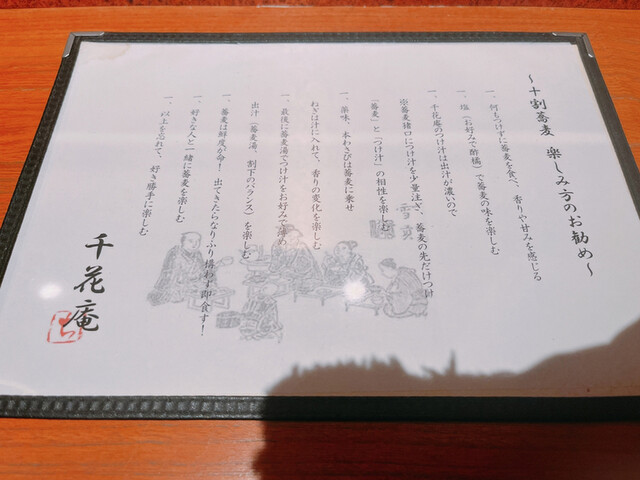 ～十割蕎麦 楽しみ方のお勧め～
一、何もつけずに蕎麦を食べ、香りや甘みを感じる
一、塩（お好みで酢橘）で蕎麦の味を楽しむ
一、千花庵のつけ汁は出汁が濃いので
※蕎麦猪口につけ汁を少量注ぎ、蕎麦の先だけつけ
「蕎麦」と「つけ汁」の相性を楽しむ
一、薬味、本わさびは蕎麦に乗せ
ねぎは汁に入れて、香りの変化を楽しむ
一、最後に蕎麦湯でつけ汁をお好みで薄め
出汁（蕎麦湯、割下のバランス）を楽しむ
一、蕎麦は鮮度が命！出てきたらなりふり構わず即食す！
一、好きな人と一緒に蕎麦を楽しむ
一、以上を忘れて、好き勝手に楽しむ
千花庵